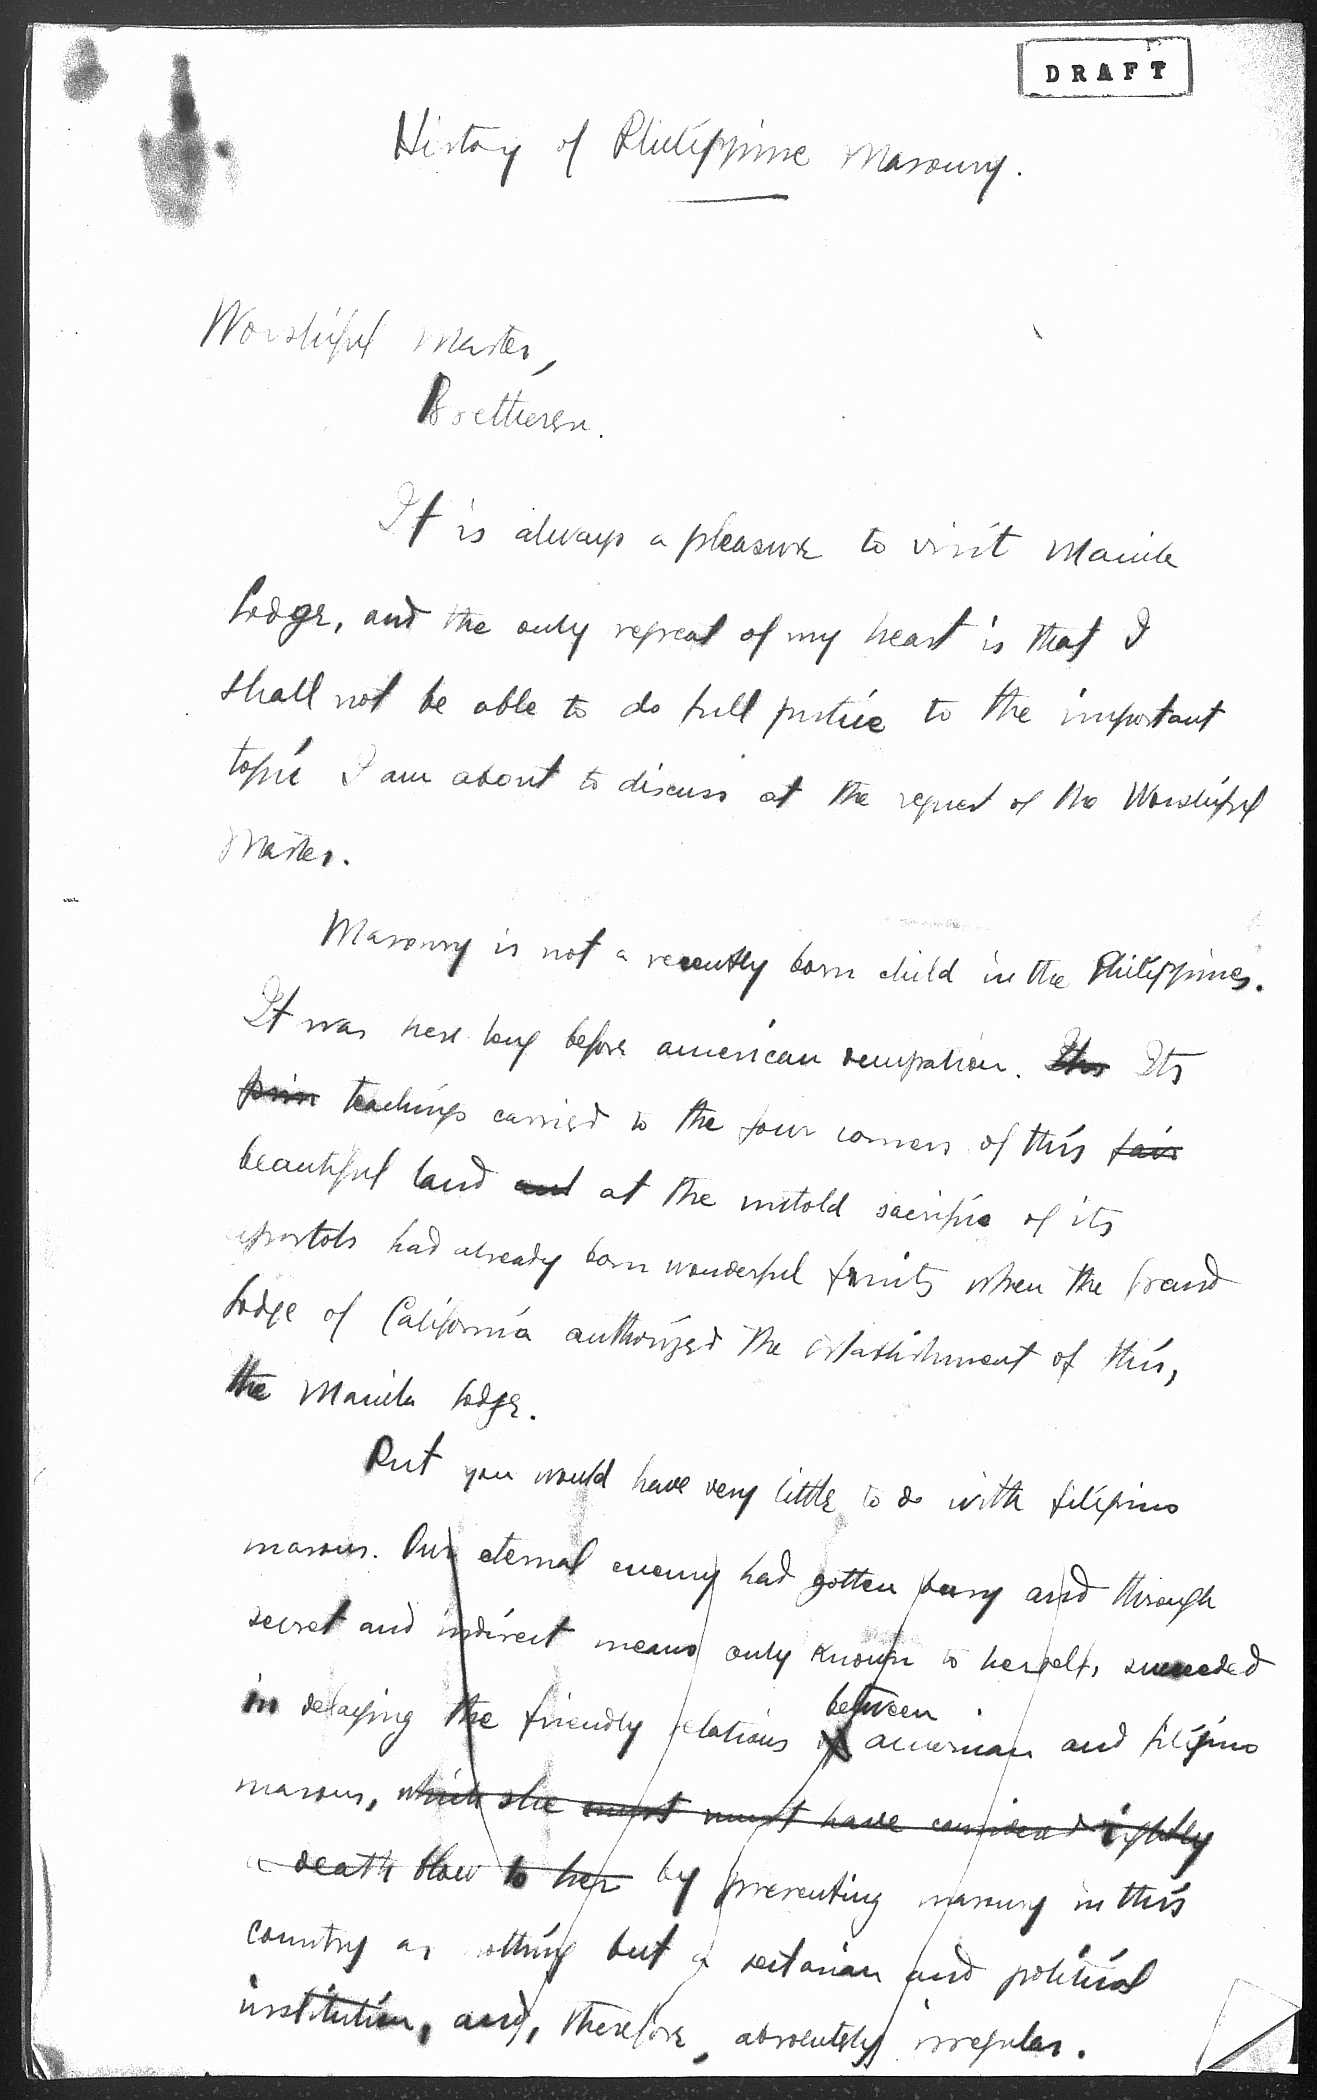 DRAFT
History of Philippine Masonry.
Worshipful Master,
Brethren.
It is always a pleasure to visit Manila
Lodge, and the only regreat of my heart is that I
shall not be able to do full justice to the important
topic I am about to discuss at the request of the Worshipful
Master.
Masonry is not a recently born child in the Philippines.
It was here long before american occupation. Its
teachings carried to the four corners of this fair
beautiful land and at the untold sacrifice of its
apostols had already born wonderful fruits when the Grand
Lodge of California authorized the establishment of this,
the Manila Lodge.
But you would have very little to do with filipino
masons. Our eternal enemy had gotten busy and through
secret and indirect means only known to herself, succeeded
in delaying the friendly relations between american and filipino
masons, which she must must have considered rightly
a death blow to her by presenting masonry in this
country as nothing but a sectarian and political
institution, and, therefore, absolutely irregular.